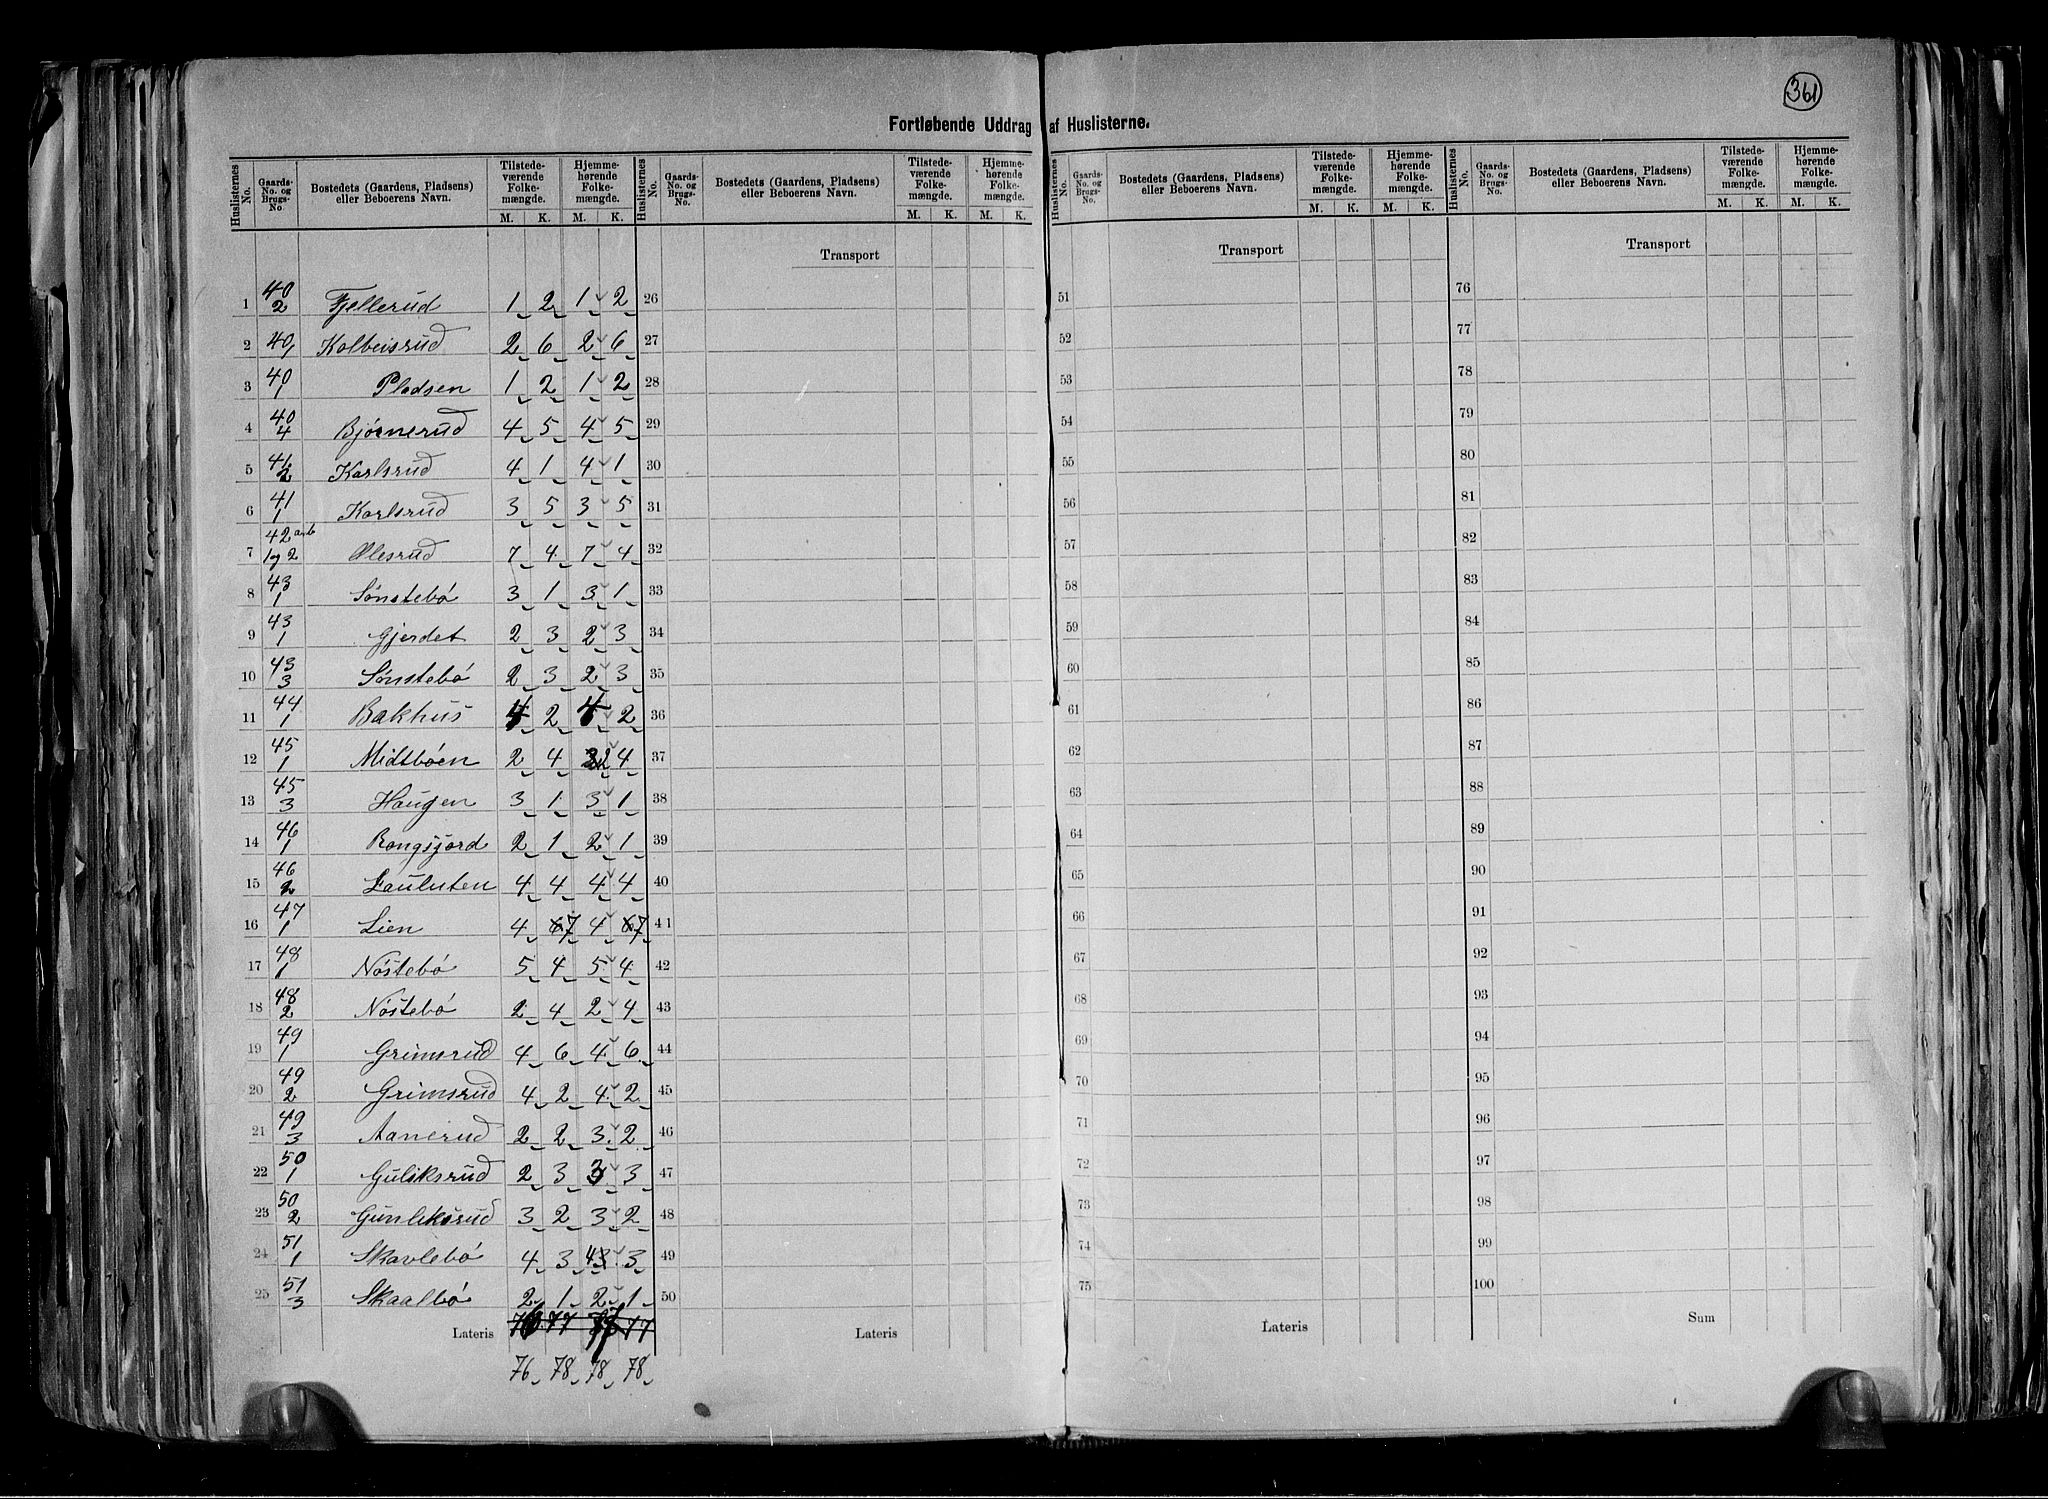 361
Fortløbende Uddrag af Huslisterne.
Huslisternes No. | Gaards-No. og Brugs-No. | Bostedets (Gaardens, Pladsens) eller Beboerens Navn. | Tilstedeværende Folkemængde. M. K. | Hjemmehørende Folkemængde. M. K. | Huslisternes No. | Gaards-No. og Brugs-No. | Bostedets (Gaardens, Pladsens) eller Beboerens Navn. | Tilstedeværende Folkemængde. M. K. | Hjemmehørende Folkemængde. M. K. | Huslisternes No. | Gaards-No. og Brugs-No. | Bostedets (Gaardens, Pladsens) eller Beboerens Navn. | Tilstedeværende Folkemængde. M. K. | Hjemmehørende Folkemængde. M. K. | Huslisternes No. | Gaards-No. og Brugs-No. | Bostedets (Gaardens, Pladsens) eller Beboerens Navn. | Tilstedeværende Folkemængde. M. K. | Hjemmehørende Folkemængde. M. K.
Transport Transport Transport
1 40/2 Fjellerud 1 2 1 2 26 51 76
2 40/1 Kolbeisrud 2 6 2 6 27 52 77
3 40/1 Pladsen 1 2 1 2 28 53 78
4 40/4 Bjørnerud 4 5 4 5 29 54 79
5 41/2 Karlsrud 4 1 4 1 30 55 80
6 41/1 Karlsrud 3 5 3 5 31 56 81
7 42/1 og 2 Olesrud 7 4 7 4 32 57 82
8 43/1 Sønstebö 3 1 3 1 33 58 83
9 43/1 Gjerdet 2 3 2 3 34 59 84
10 43/3 Sønstebö 2 3 2 3 35 60 85
11 44/1 Bakhus 4 2 4 2 36 61 86
12 45/1 Midtböen 2 4 2 4 37 62 87
13 45/3 Haugen 3 1 3 1 38 63 88
14 46/1 Rongsjord 2 1 2 1 39 64 89
15 46/2 Lauluten 4 4 4 4 40 65 90
16 47/1 Lien 4 7 4 7 41 66 91
17 48/1 Nöstebö 5 4 5 4 42 67 92
18 48/2 Nöstebö 2 4 2 4 43 68 93
19 49/1 Grimsrud 4 6 4 6 44 69 94
20 49/2 Grimsrud 4 2 4 2 45 70 95
21 49/3 Aanerud 2 2 3 2 46 71 96
22 50/1 Guliksrud 2 3 3 3 47 72 97
23 50/2 Gunliksrud 3 2 3 2 48 73 98
24 51/1 Skavlebö 4 3 4 3 49 74 99
25 51/3 Skaalbö 2 1 2 1 50 75 100
Lateris 77 77 Lateris Lateris Sum
76 78 78 78